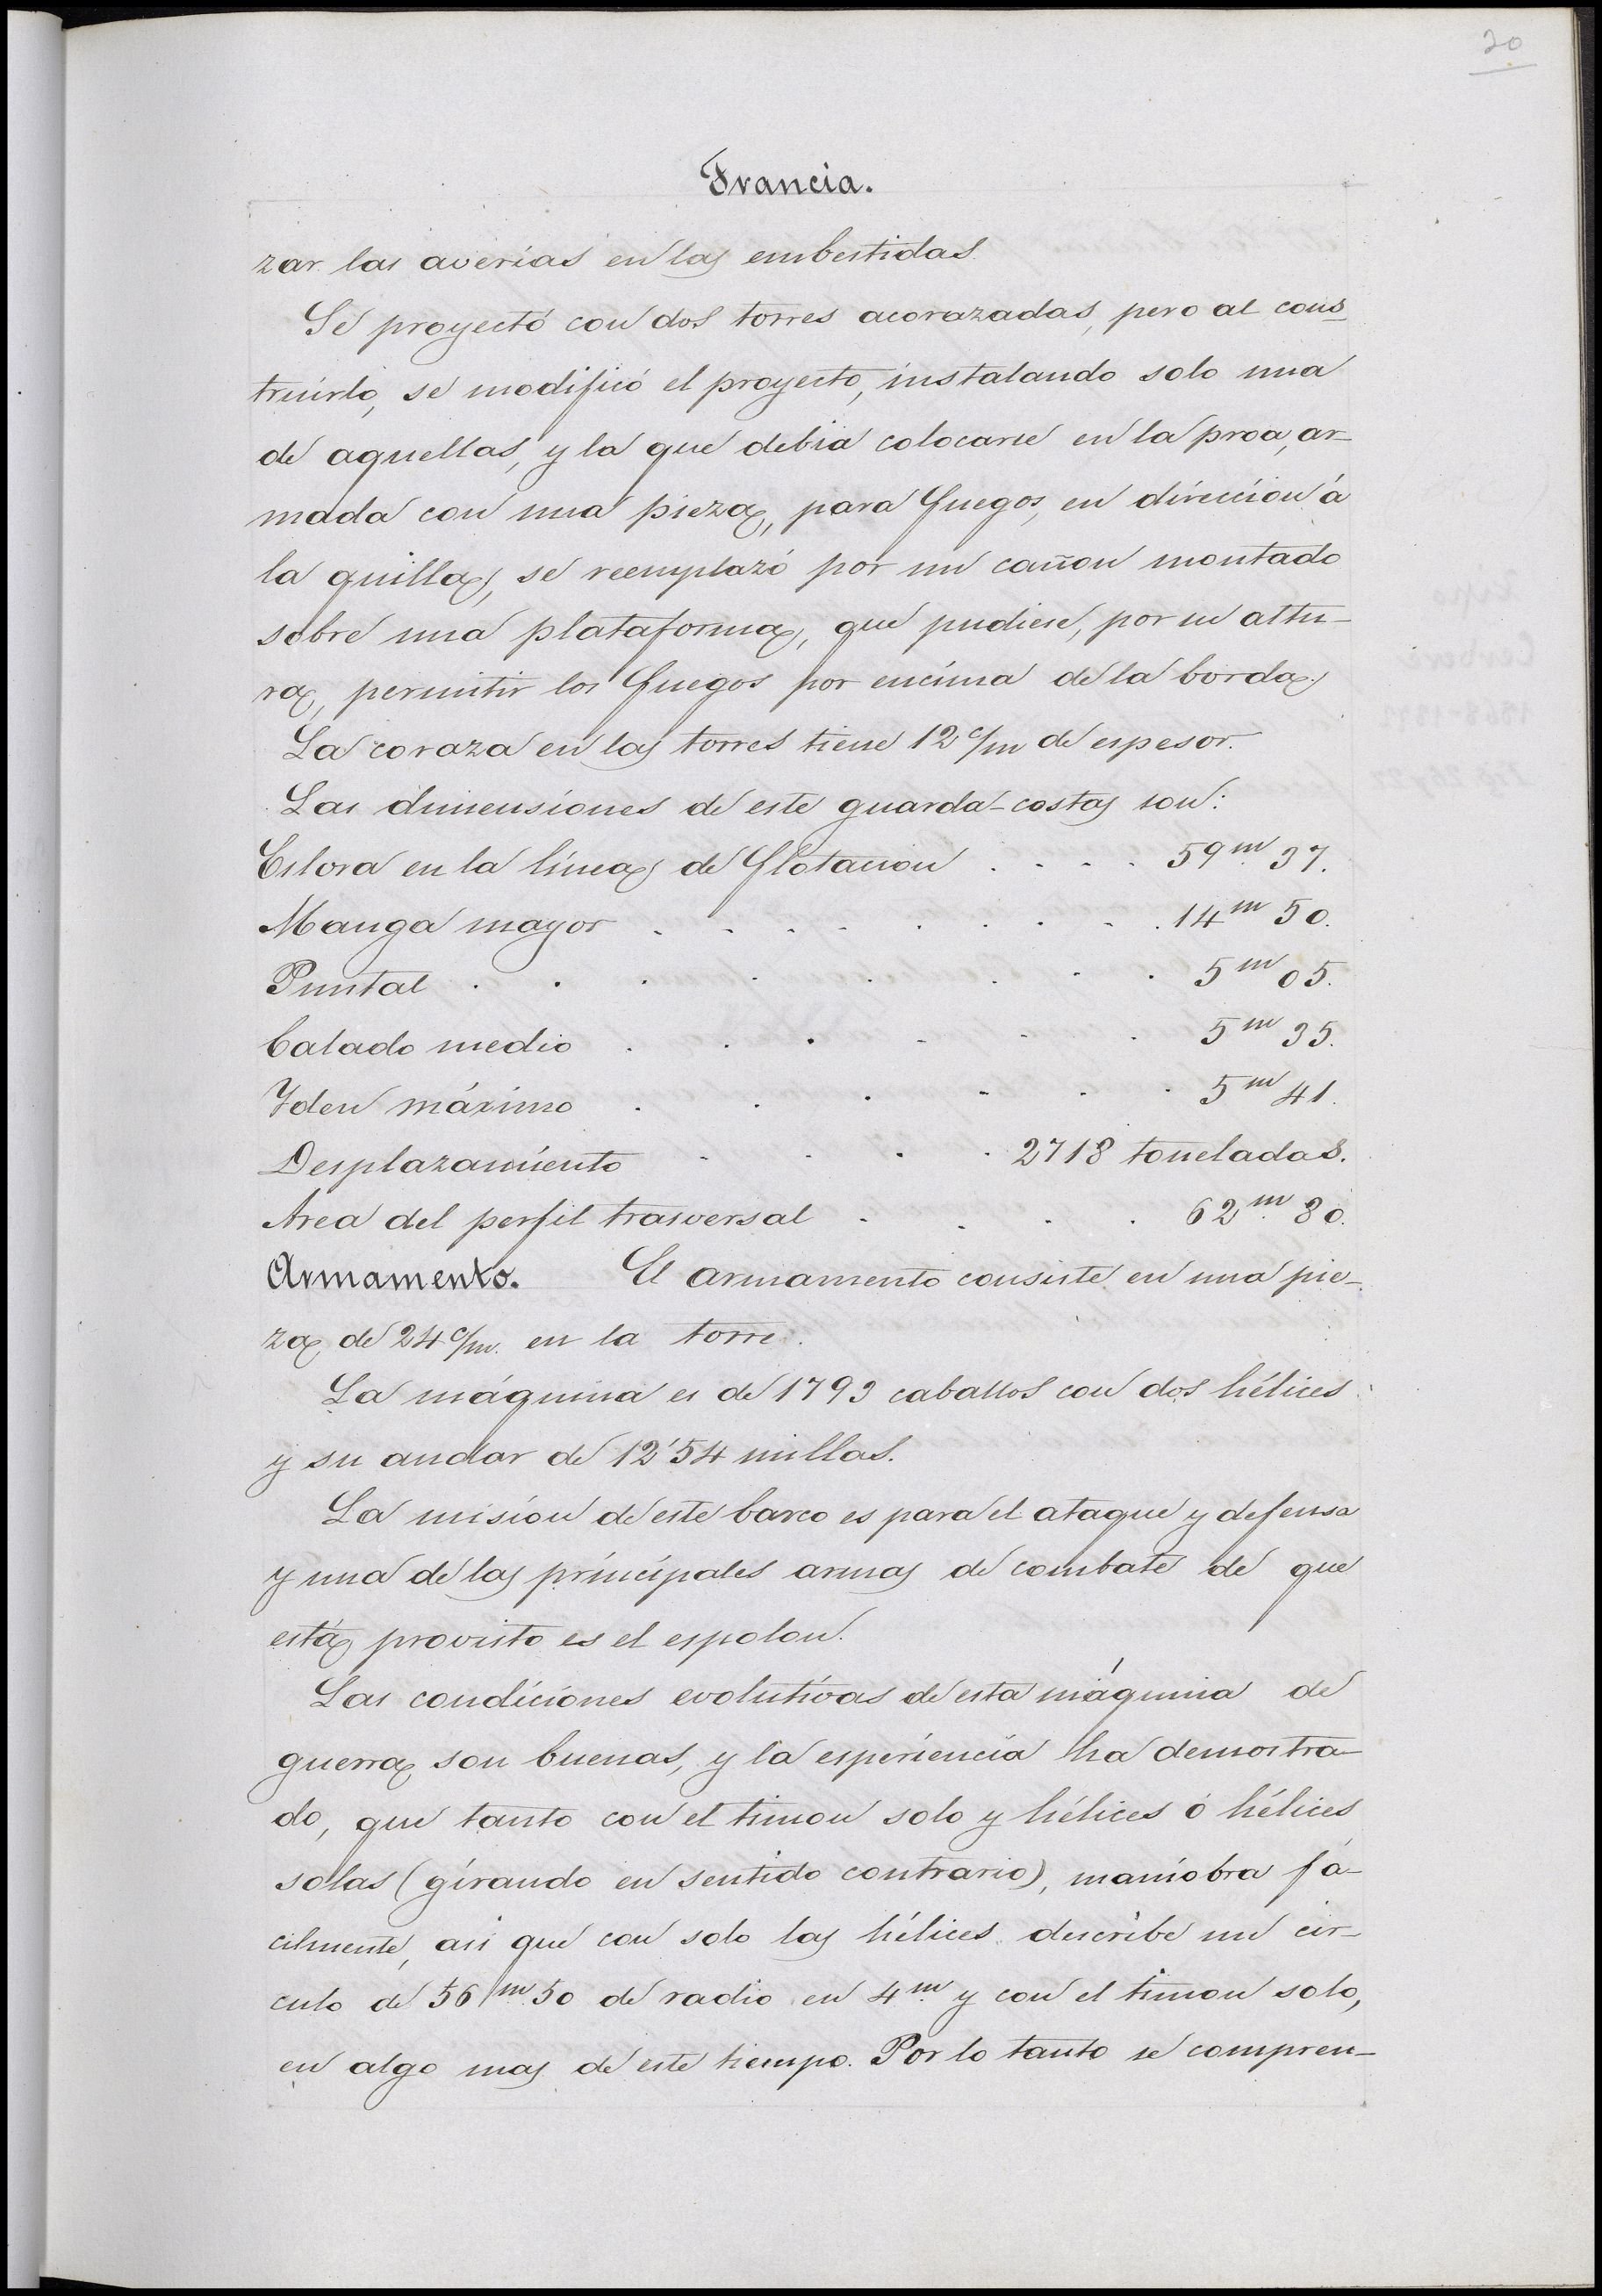 20
Francia.
zar las averías en las embestidas.
Se proyectó con dos torres acorazadas, pero al cons-
truirlo, se modificó el proyecto, instalando solo una
de aquellas, y la que debia colocarse en la proa, ar-
mada con una pieza, para fuegos, en direccion á
la quilla, se reemplazó por un cañon montado
sobre una plataforma, que pudiese, por su altu-
ra, permitir los fuegos por encima de la borda.
La coraza en las torres tiene 12 c/m de espesor.
Las dimensiones de este guarda-costas son:
Eslora en la línea de flotacion . . . . 59m 37.
Manga mayor . . . . . . . . . 14m 50.
Puntal . . . . . . . 5m 05.
Calado medio . . . . . . 5m 35.
Yden máximo . . . . . . 5m 41.
Desplazamiento . . . . 2718 toneladas.
Area del perfil trasversal . . . . 62m 80.
Armamento. El armamento consiste en una pie-
za de 24 c/m. en la torre.
La máquina es de 1793 caballos con dos hélices
y su andar de 12'54 millas.
La mision de este barco es para el ataque y defensa
y una de las principales armas de combate de que
está provisto es el espolon.
Las condiciones evolutivas de esta máquina de
guerra son buenas, y la esperiencia ha demostra-
do, que tanto con el timon solo y hélices ó hélices
solas (girando en sentido contrario), maniobra fá-
cilmente, asi que con solo las hélices describe un cír-
culo de 56m 50 de radio en 4m y con el timon solo,
en algo mas de este tiempo. Por lo tanto se compren-